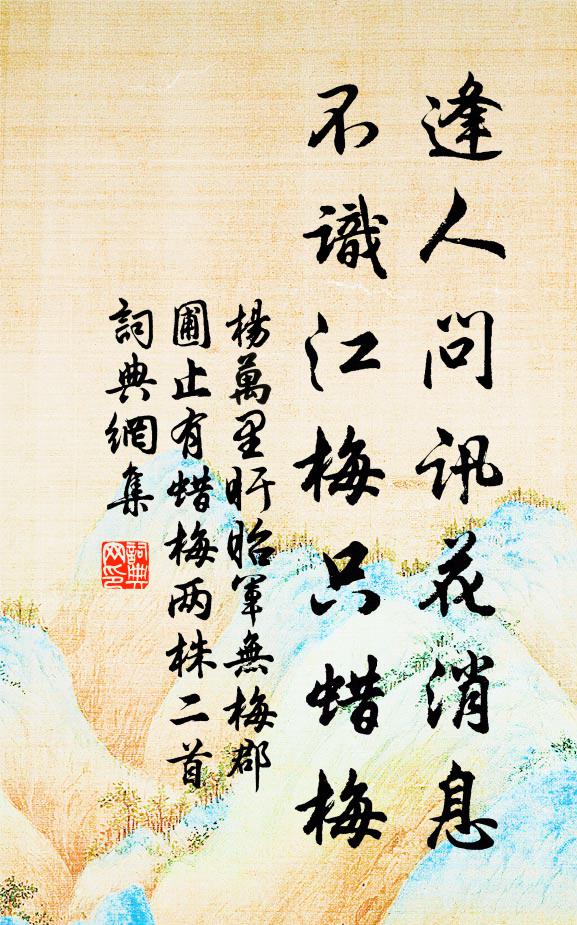 逢人問訊花消息
不識江梅只蜡梅
楊萬里盱眙軍無梅郡
圃止有蜡梅两株二首
詞典網集
詞典
网印